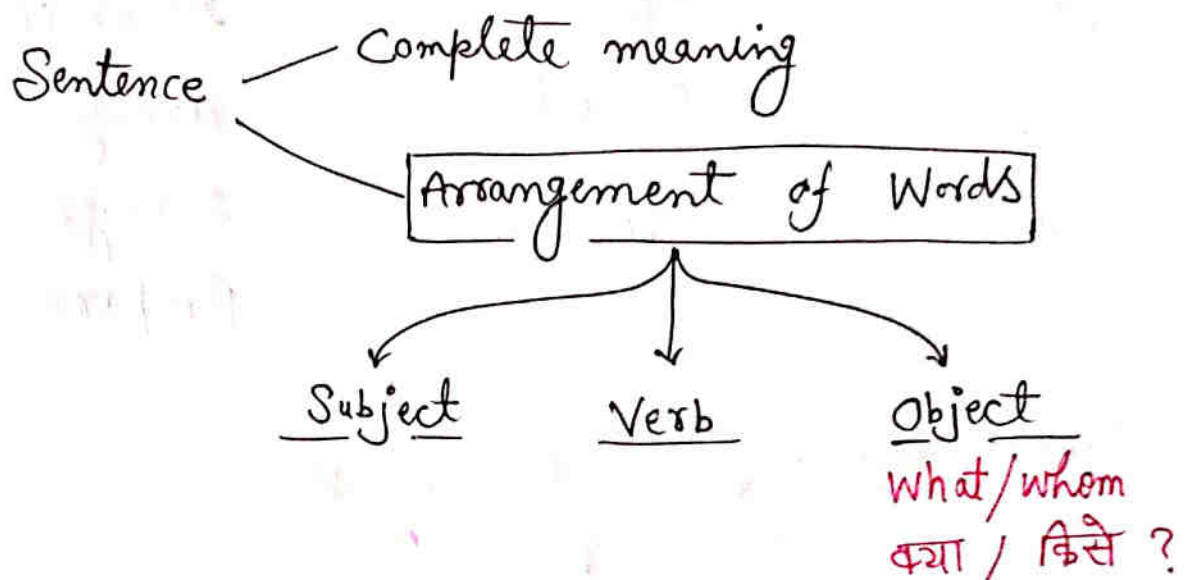 Sentence
Complete meaning
Arrangement of Words
Subject Verb Object
What/whom
क्या / किसे ?